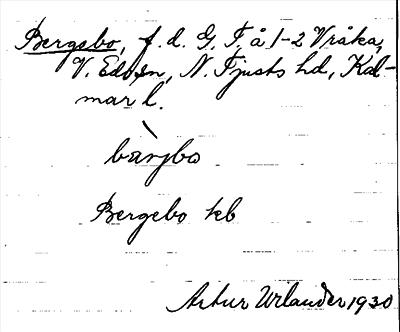 Bergsbo, f. d. G. T. å 1-2 Vråka,
V. Eds sn, N. Tjusts hd, Kal-
mar l.
bärjbo
Bergebo kb
Artur Urlander 1930